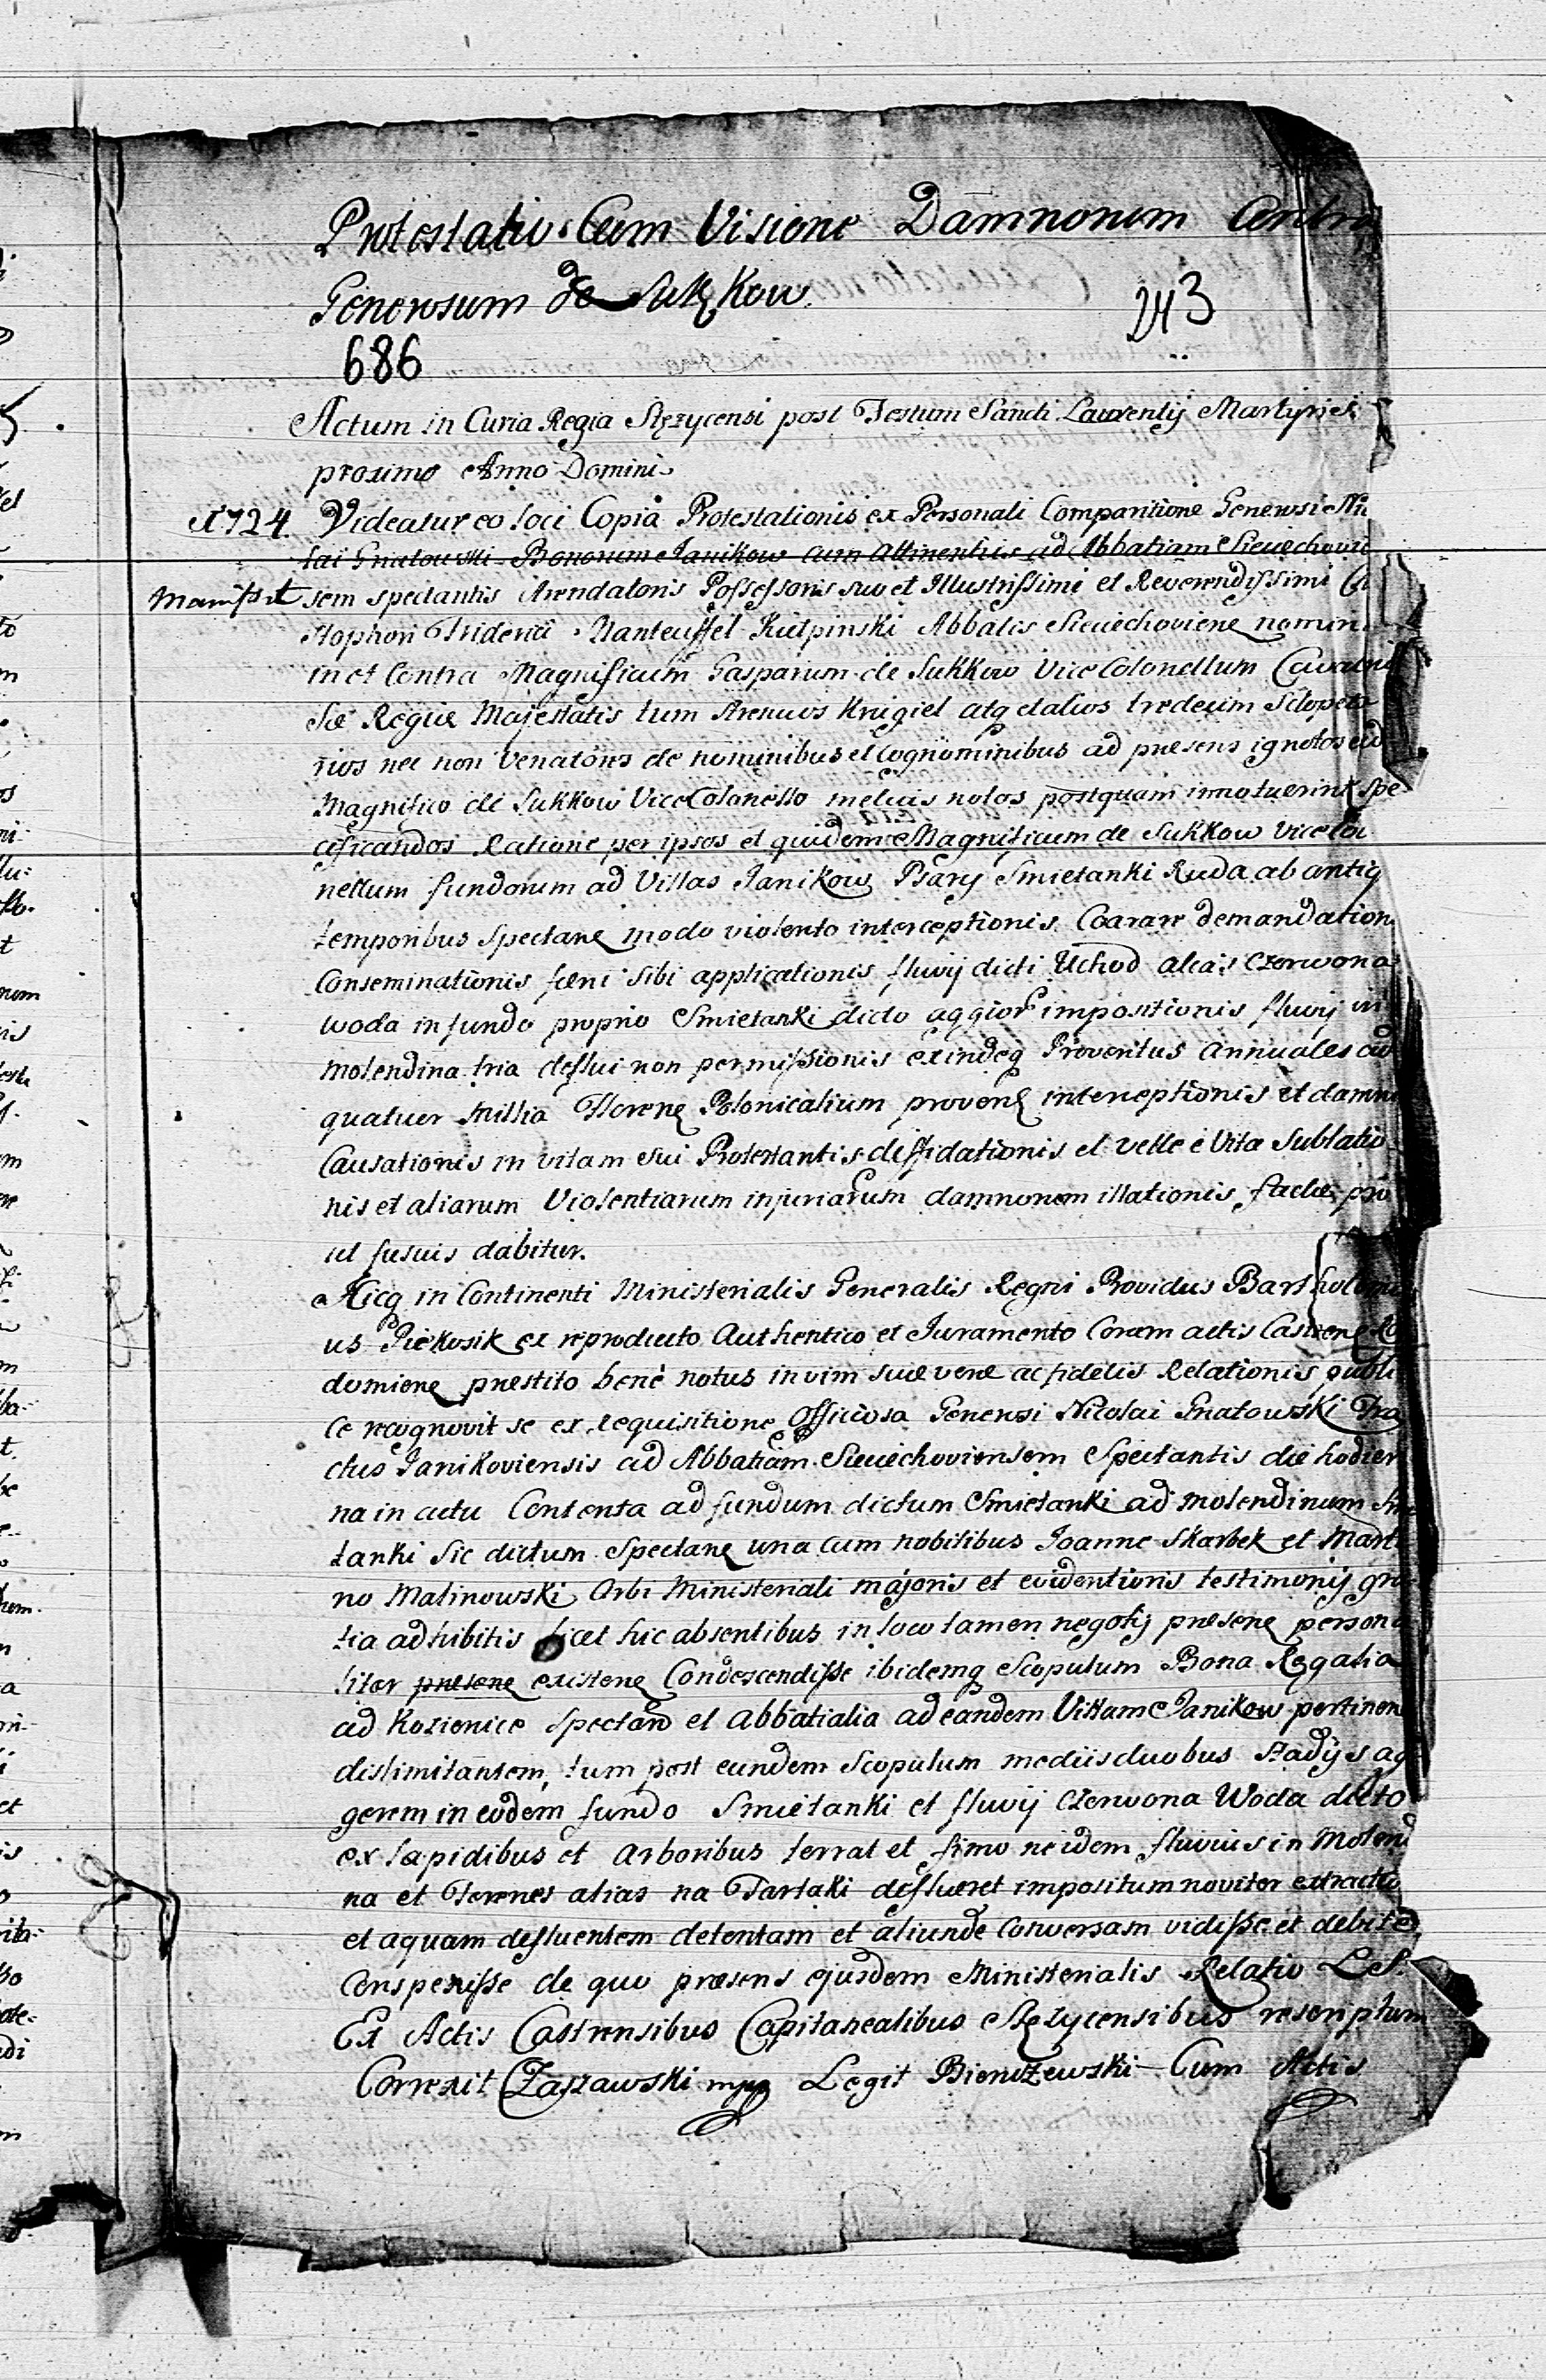 Protestatio Cum Visione Damnorum Contra
Generosum de Sukkow.
243
686
Actum in Curia Regia Stęzycensi post Festum Sancti Laurentij Martyris
proximo Anno Domini
1724. Videatur eo loci Copia Protestationis ex Personali Comparitione Generosi Ni
lai Gnatowski Bonorum Janikow cum attinentiis ad Abbatiam Sieciechovi
Manifest sem spectantis Arendatoris Possessoris suo et Illustrissimi et Reverendissimi
stophori Friderici Manteuffel Kielpinski Abbatis Sieciechoviens nomin
in et Contra Magnificum Gasparum de Sukkow Vice Colonellum
Sæ Regiæ Majestatis tum strenuos Krigiel atq et alios tredecim Sclopeta
rios nec non Venatores de nominibus et cognominibus ad præsens ignotos eid
Magnifico de Sukkow ViceColonello melius notos postquam innotuerint spe
cificandos Ratione per ipsos et quidem Magnificum de Sukkow Vice Co
nellum fundorum ad Villas Janikow Psary Smietanki Ruda ab antiq
temporibus spectans modo violento interceptionis demandation
Conseminationis fæni sibi applicationis fluvij dicti Uchod alias Czerwona
woda in fundo proprio Smietanki dicto impositionis fluvij in
molendina tria deflui non permissionis exindeq Proventus annuales ad
quatuor millia Floren Polonicalium proven interceptionis et damni
Causationis in vitam sui Protestantis diffidationis et velle e Vita sublatio
nis et aliarum Violentiarum injuriarum damnorum illationis factæ pro
ut fusius dabitur.
Hicq in Continenti Ministerialis Generalis Regni Providus Bartholomæ
us Piekosik ex reproducto Authentico et Juramento Coram actis Castrens Ra
domiens præstito bene notus in vim suæ veræ ac fidelis Relationis publi
ce recognovit se ex requisitione Officiosa Generosi Nicolai Gnatowski Tra
ctus Janikoviensis ad Abbatiam Sieciechoviensem Spectantis die hodier
na in actu Contenta ad fundum dictum Smietanki ad molendinum Smie
tanki sic dictum Spectans una cum nobilibus Joanne Skarbek et Marti
no Malinowski sibi Ministeriali majoris et evidentioris testimonij gra
tia adhibitis licet hic absentibus in loco tamen negotij præsens persona
liter præsens existens Condescendisse ibidemq Scopulum Bona Regalia
ad Kozienice spectan et abbatialia ad eandem Villam Janikow pertinen
dislimitantem, tum post eundem Scopulum mediis duobus stadijs ag
gerem in eodem fundo Smietanki et fluvij Czerwona Woda dicto
ex lapidibus et Arboribus terrat et fimo ne idem fluvius in Molend
na et Serenes alias na Tartaki deflueret impositum noviter extractu
et aquam defluentem detentam et aliunde conversam vidisse et debite
Conspexisse de quo præsens ejusdem Ministerialis Relatio LS.
Ex Actis Castrensibus Capitanealibus Stęzycensibus rescriptum
Correxit Zaszawski mpp Legit Biendzewski Cum Actis